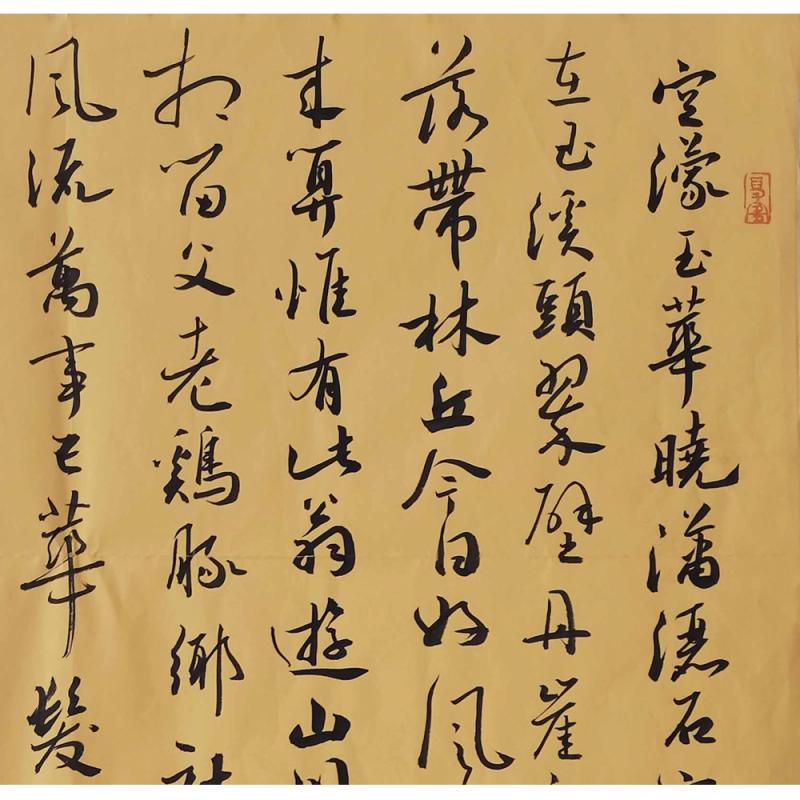 空濛玉華曉瀟灑石
在玉溪頭翠壁丹崖
落帶林丘今日好風
来算惟有此翁遊山川
相留父老鷄豚鄉社
風流萬事已華髮